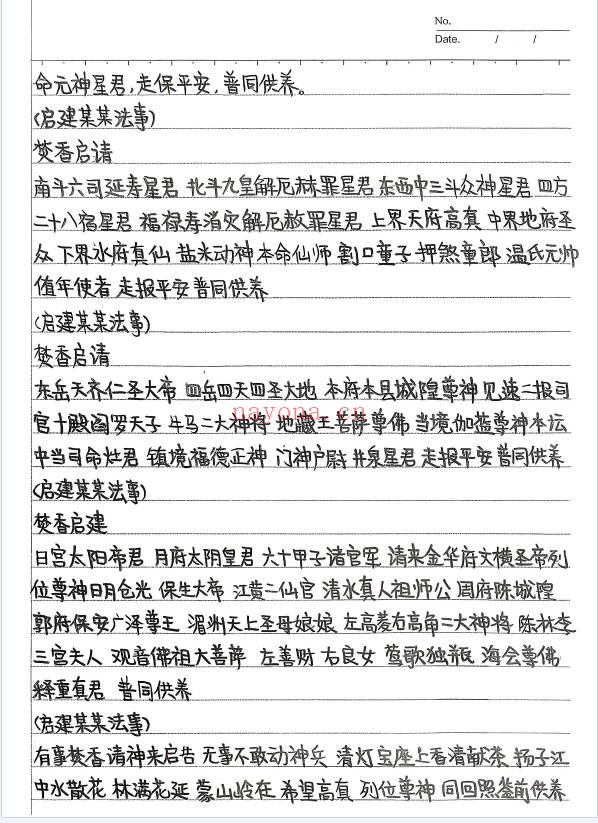 No.
Date. / /
命元神星君,走保平安,普同供养。
(启建某某法事)
焚香启请
南斗六司延寿星君 北斗九皇解厄赦罪星君 东西中三斗众神星君 四方
二十八宿星君 福禄寿消灾解厄赦罪星君 上界天府高真 中界地府圣
众 下界水府真仙 盐米动神本命仙师 割口童子 押煞童郎 温氏元帅
值年使者 走报平安普同供养
(启建某某法事)
焚香启请
东岳天齐仁圣大帝 四岳四天四圣大地 本府本县城隍尊神 见速二报司
官十殿阎罗天子 牛马二大神将 地藏王菩萨尊佛 当境伽蓝尊神本坛
中当司命灶君 镇境福德正神 门神户尉 井泉星君 走报平安普同供养
(启建某某法事)
焚香启建
日宫太阳帝君 月府太阴皇君 六十甲子诸官军 请来金华府文横圣帝列
位尊神日月仓光 保生大帝 江黄二仙官 清水真人祖师公 周府陈城隍
郭府保安广泽尊王 湄洲天上圣母娘娘 左高菱右高角二大神将 陈林李
三宫夫人 观音佛祖大菩萨 左善财 右良女 莺歌独瓶 海会尊佛
释重真君 普同供养
(启建某某法事)
有事焚香请神来启告 无事不敢动神兵 清灯宝座上香清献茶 扬子江
中水散花 林满花延 蒙山岭在 希望高真 列位尊神 同回照鉴前供养
nayona.cn